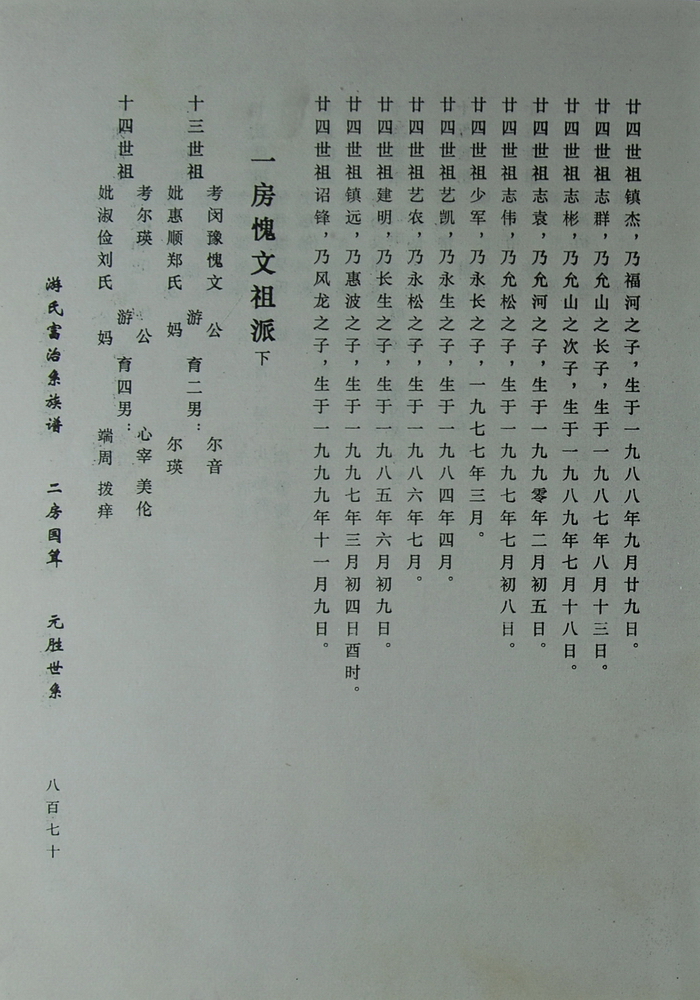 廿四世祖镇杰，乃福河之子，生于一九八八年九月廿九日。
廿四世祖志群，乃允山之长子，生于一九八七年八月十三日。
廿四世祖志彬，乃允山之次子，生于一九八九年七月十八日。
廿四世祖志袁，乃允河之子，生于一九九零年二月初五日。
廿四世祖志伟，乃允松之子，生于一九九七年七月初八日。
廿四世祖少军，乃永长之子，一九七七年三月。
廿四世祖艺凯，乃永生之子，生于一九八四年四月。
廿四世祖艺农，乃永松之子，生于一九八六年七月。
廿四世祖建明，乃长生之子，生于一九八五年六月初九日。
廿四世祖镇远，乃惠波之子，生于一九九七年三月初四日酉时。
廿四世祖诏锋，乃风龙之子，生于一九九九年十一月九日。
一房愧文祖派下
考闵豫愧文 公 尔音
十三世祖 游 育二男：
妣惠顺郑氏 妈 尔瑛
考尔瑛 公 心宰 美伦
十四世祖 游 育四男：
妣淑俭刘氏 妈 端周 拨痒
游氏富治系族谱 二房国算 元胜世系 八百七十